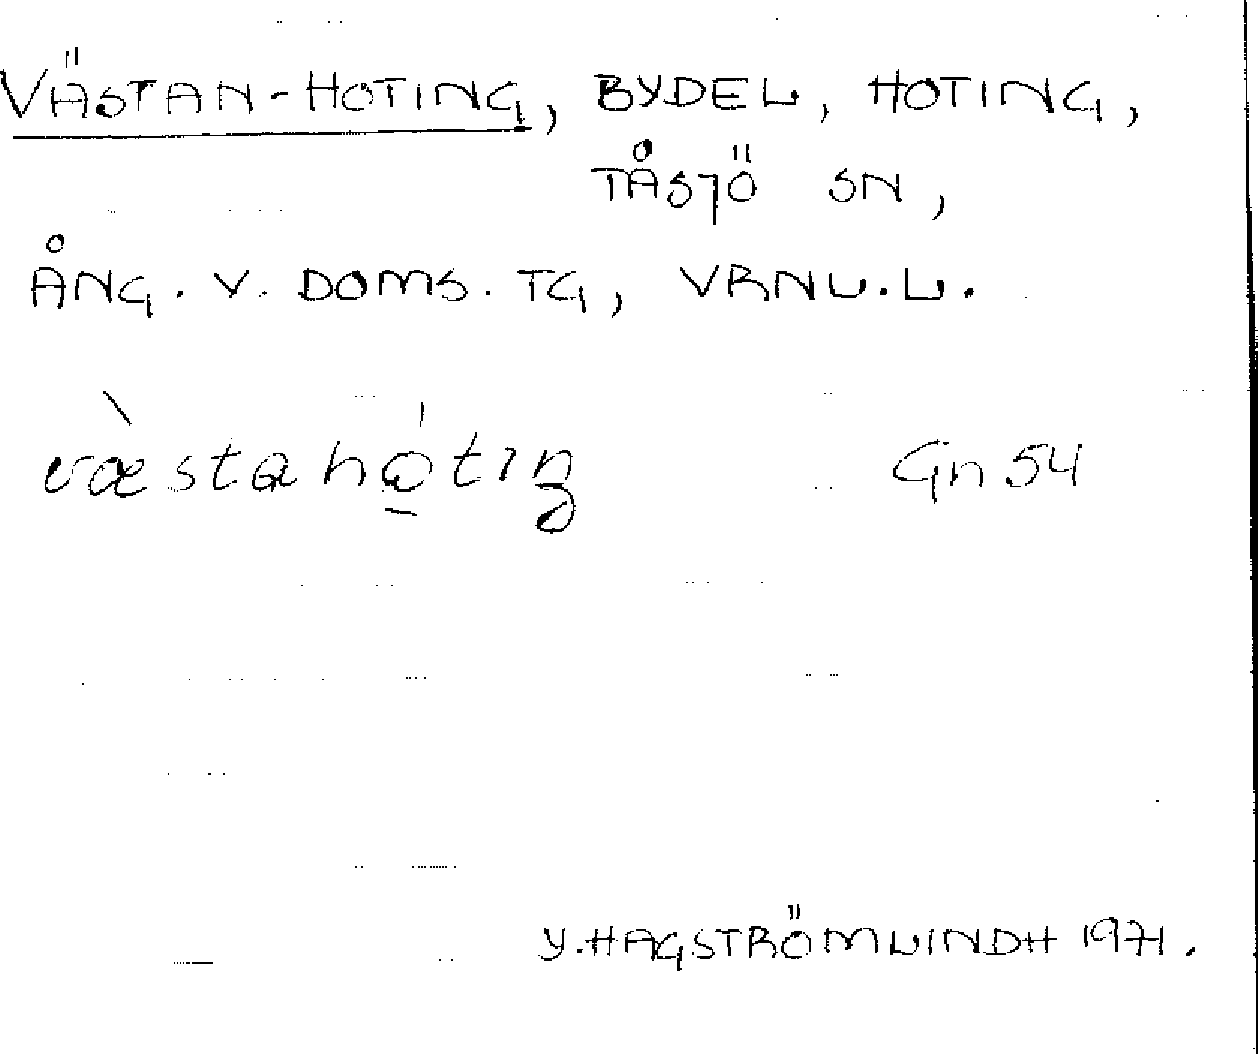 VÄSTAN-HOTING, BYDEL, HOTING,
TÅSJÖ SN,
ÅNG. V. DOMS. TG, VRNL.L.
væ̀stahǫ́tıŋ Gn 54
Y. HAGSTRÖM LINDH 1971.